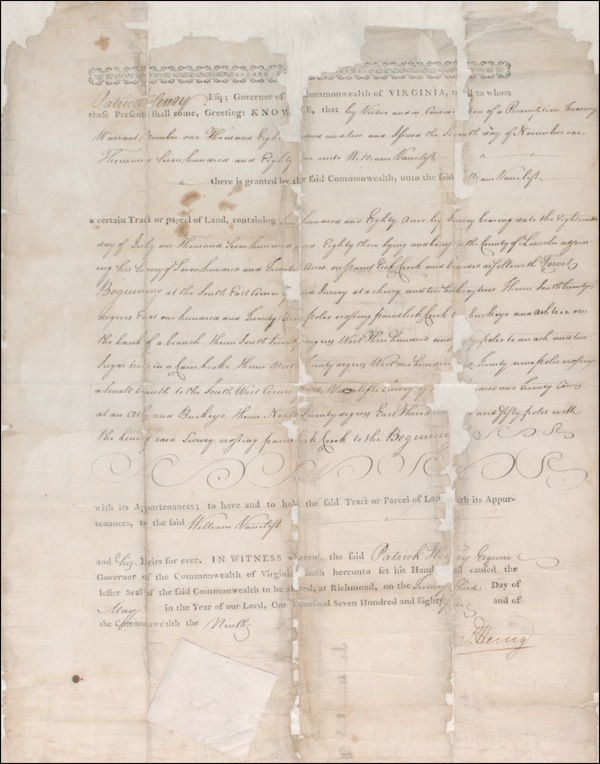 Patrick Henry Esq; Governor of Commonwealth of VIRGINIA, to whom
these Presents shall come, Greeting: KNOW that by Virtue and in of a Preemption Treasury
Warrant Number one Thousand Eigh and two and Issued the Seventh day of November one
Thousand Seven hundred and Eighty unto William Vancleft
there is granted by the said Commonwealth, unto the said William Vancleft
a certain Tract or parcel of Land, containing hundred and Eighty Acres by Survey bearing date the Eighteenth
day of July one Thousand Seven hundred Eighty three lying and being in the County of Lincoln
ing his Survey of Seven hundred and Acres on paint Creek and bounded as followeth Towit
Beginning at the South East Corner Survey at a cherry and two Thence South Twenty
degrees East one hundred and Twenty poles crossing paintlick Creek Buckeye and ash tree on
the bank of a branch Thence South degrees West Three hundred and poles to an ash and two
Sugar trees in a Canebrake Thence North Twenty degrees West one hundred Twenty nine poles crossing
a small branch to the South West Corner Survey of and Twenty Acres
at an Ash and Buckeye Thence North Seventy degrees East Three and fifty poles with
the line of said Survey crossing paint lick Creek to the Beginning
with its Appurtenances; to have and to hold the said Tract or Parcel of Land with its Appur-
tenances, to the said William Vancleft
and His Heirs for ever. IN WITNESS whereof, the said Patrick Henry Esquire
Governor of the Commonwealth of Virginia, hath hereunto set his Hand and caused the
lesser Seal of the said Commonwealth to be at Richmond, on the Third Day of
May in the Year of our Lord, One Thousand Seven Hundred and Eighty and of
the Commonwealth the Ninth
P. Henry